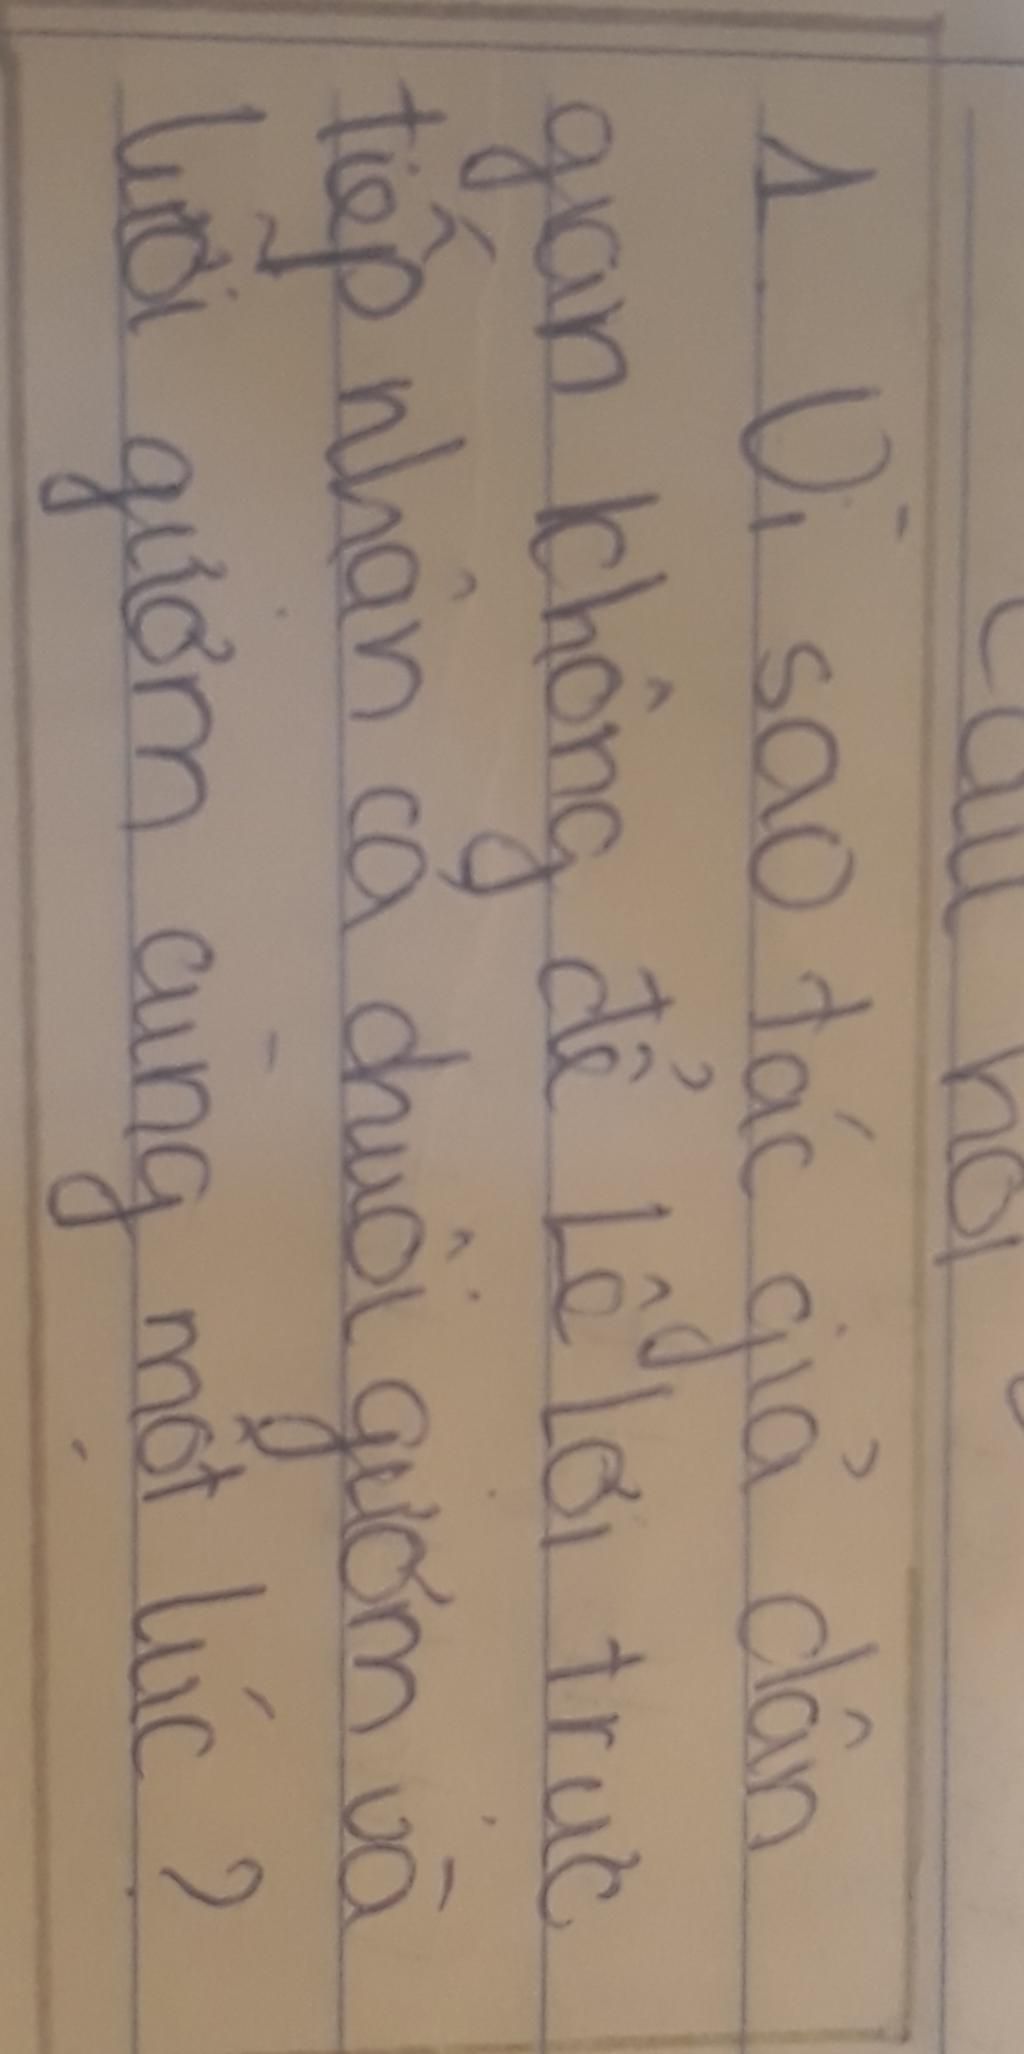 Câu hỏi
1 Vì sao tác giả dân
gian không để Lê lợi trực
tiếp nhận cả chuôi gươm và
lưỡi gươm cùng một lúc ?